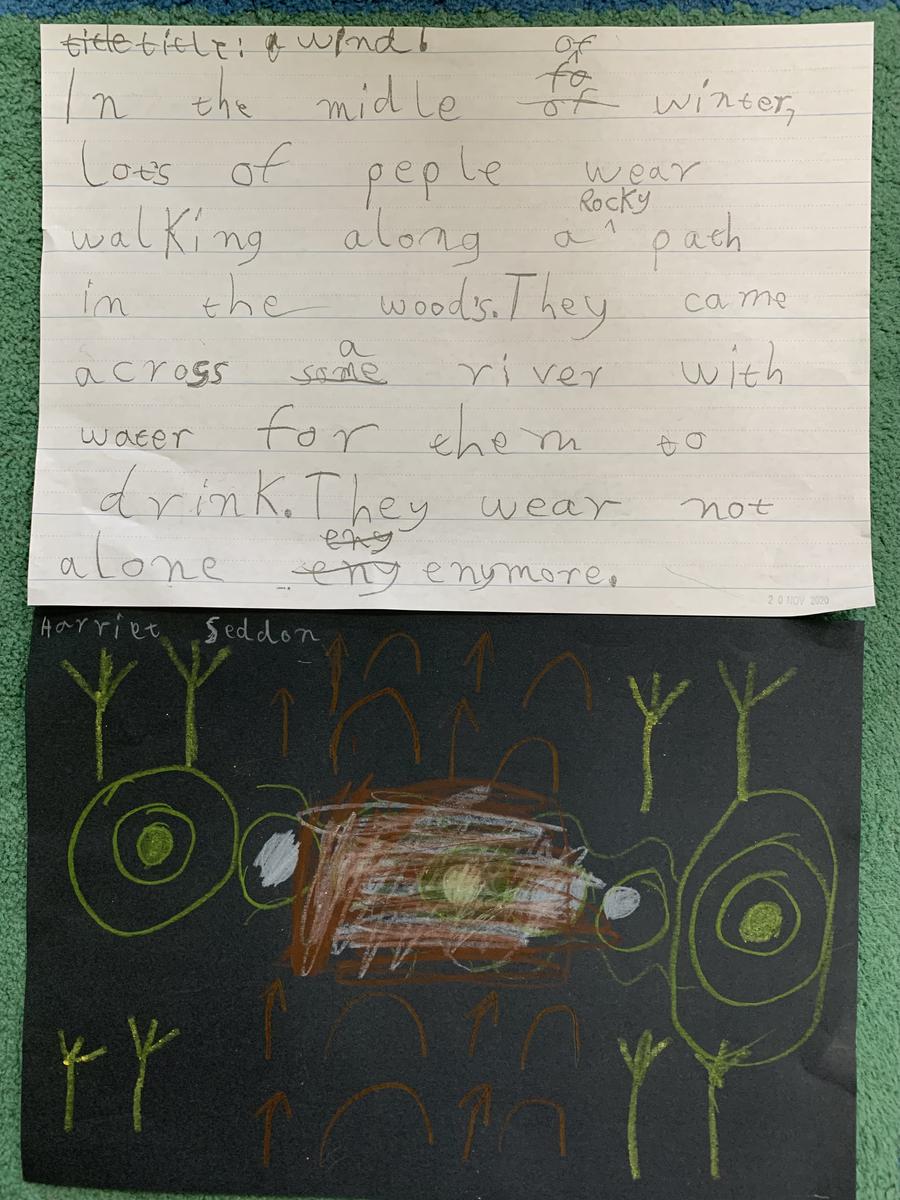 title title: a wind!
of
fo
In the midle of winter,
lots of peple wear
Rocky
walking along a ^ path
in the wood's. They came
a
across some river with
water for them to
drink. They wear not
eny
alone eny enymore.
20 NOV 2020
Harriet Seddon